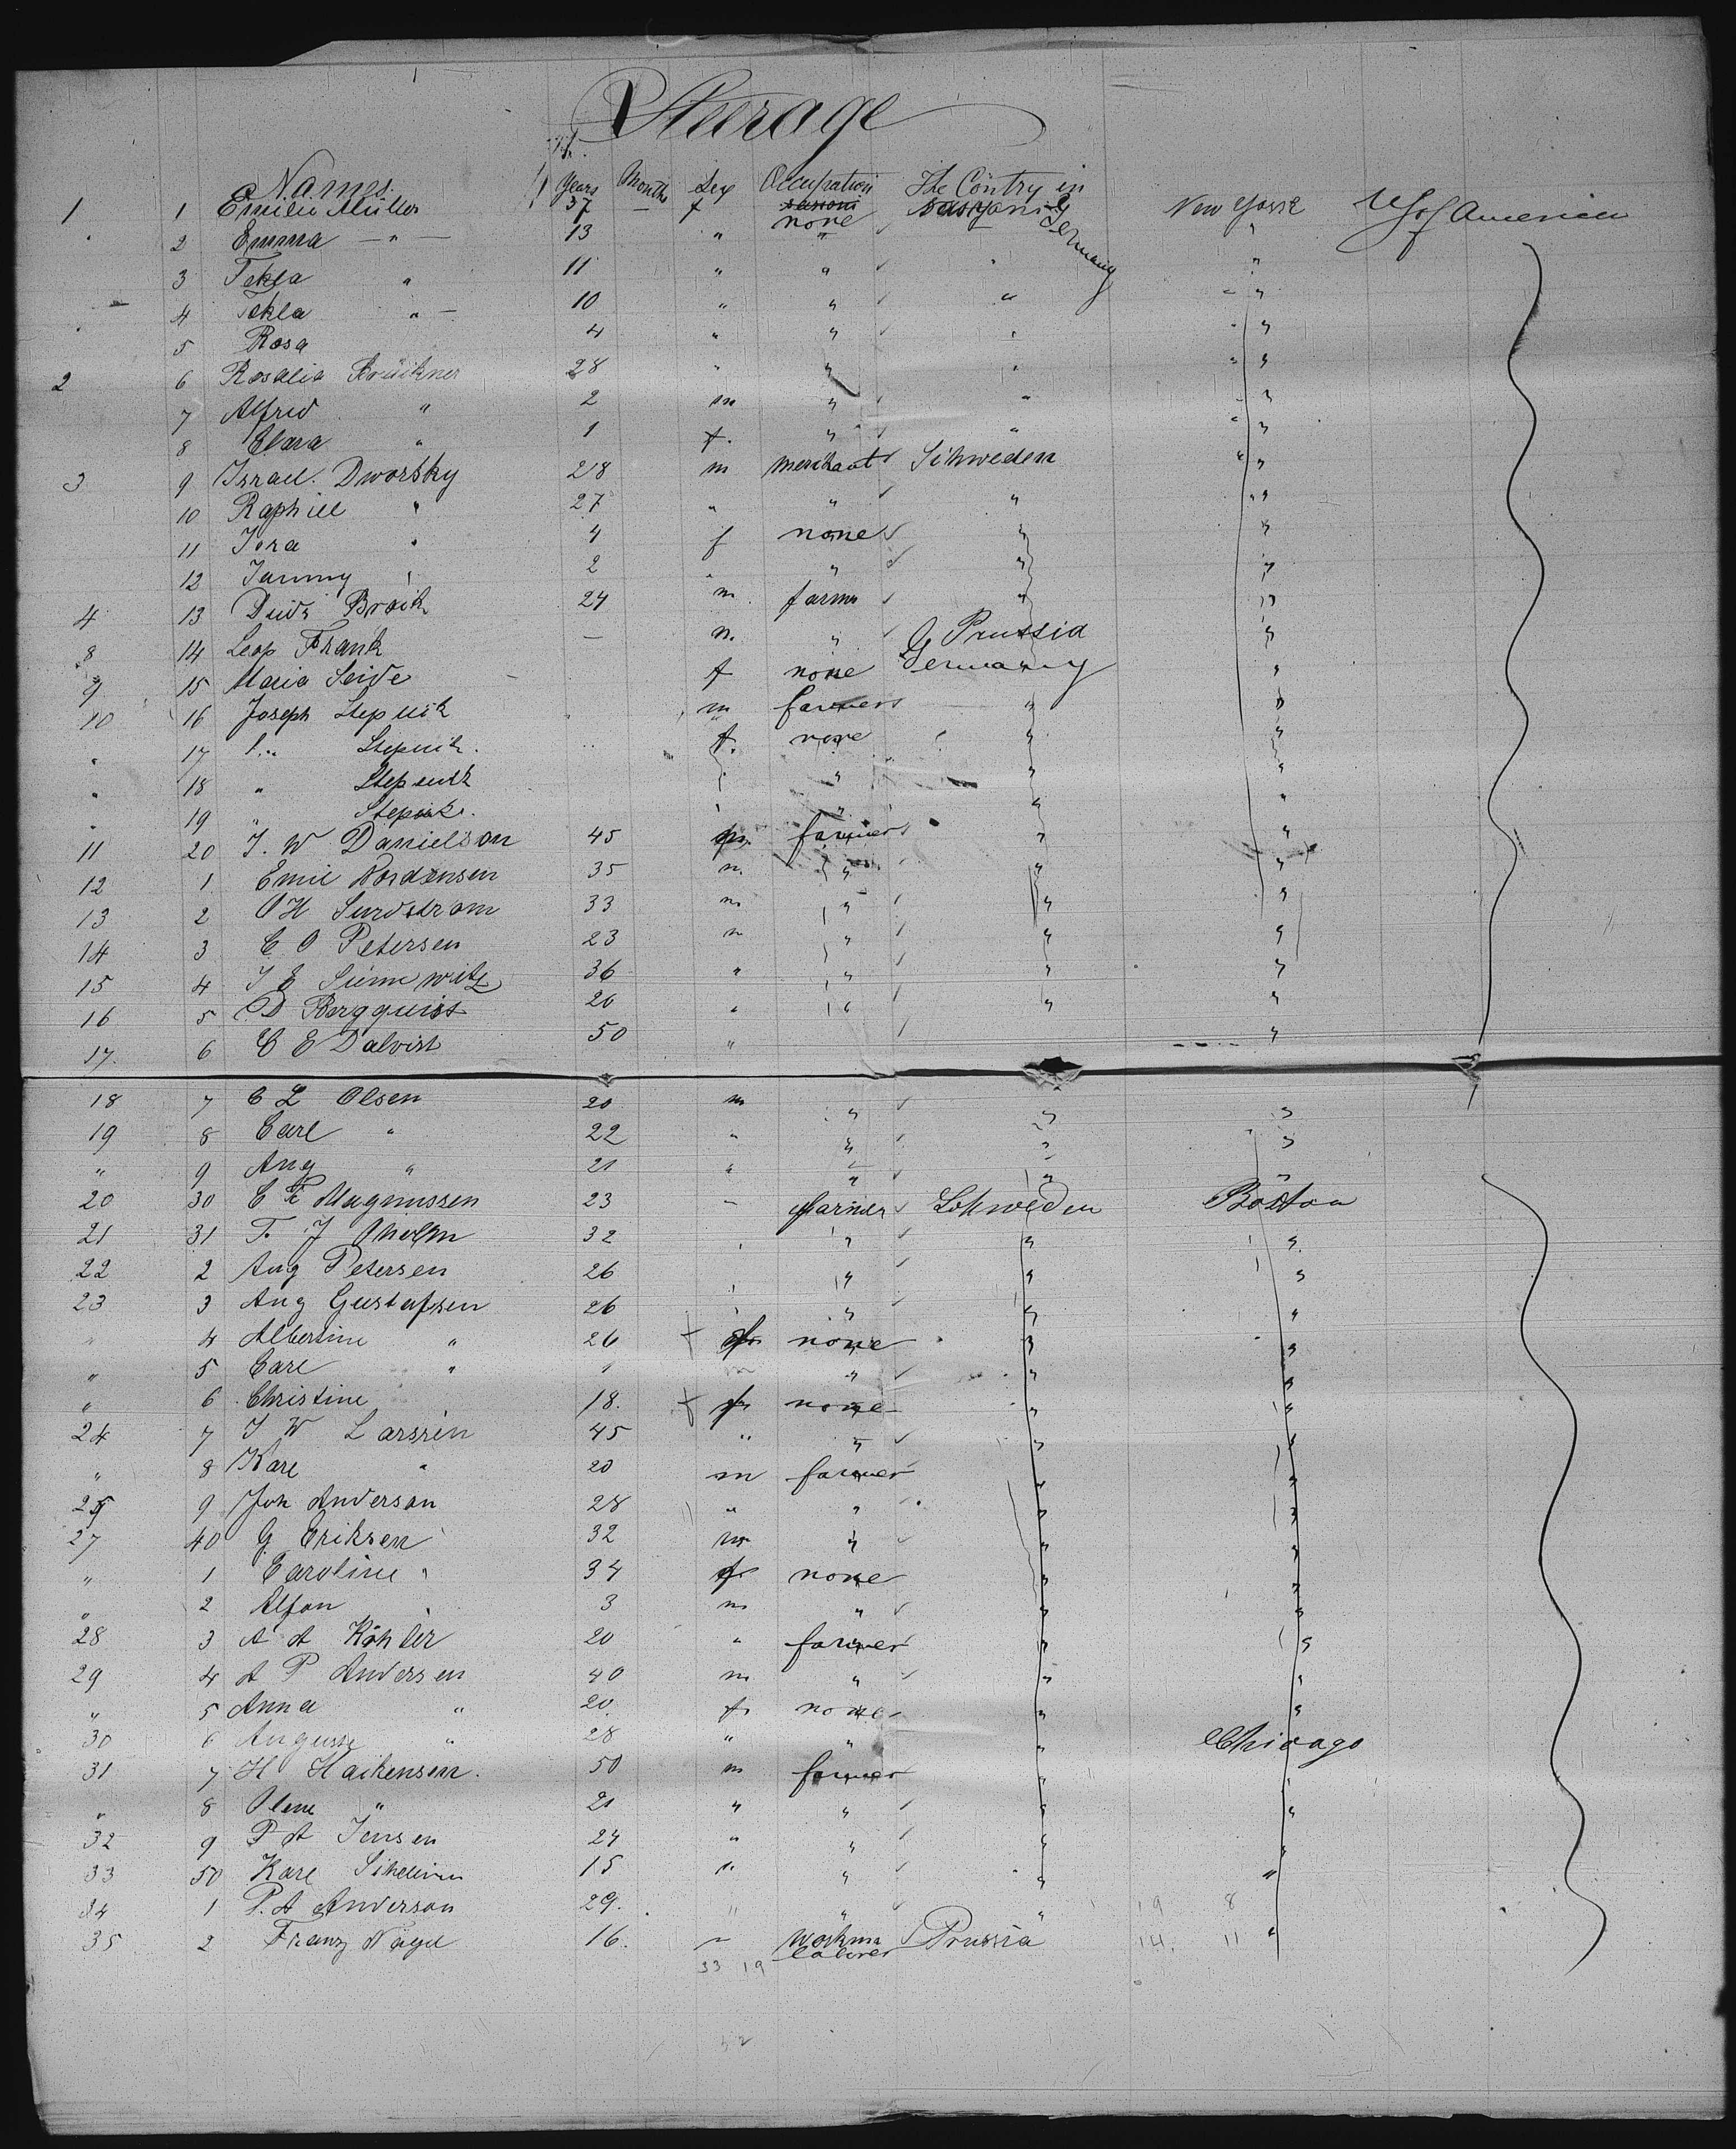 Steerage
Names. Years Months Sex Occupation The Contry in
1 1 Emilie Müller 37 — f none Germany New York US of America
2 Emma — " — 13 " " "
3 Tekla " 11 " " "
4 Tekla " — 10 " " " "
5 Rosa 4 " " "
2 6 Rosalia Brückner 28 " " "
7 Alfred " 2 m " " "
8 Clara " 1 f. " " "
3 9 Israel. Dworsky 28 m merchant Schweden "
10 Raphiel " 27 " " " "
11 4 f none " "
12 2 " " "
4 13 24 m farmer " "
8 14 Leop Frank — m. " Prussia "
9 15 Maria Seide f none Germany "
10 16 Joseph Stepnik m farmer " "
" 17 Stepnik. f. none " "
" 18 " Stepnik " " "
" 19 " Stepnik. " " "
11 20 J. W Danielson 45 m farmer " "
12 1 Emil Nordensen 35 m " " "
13 2 33 m " " "
14 3 C O Petersen 23 m " " "
15 4 36 " " " "
16 5 D Bergquist 20 " " " "
17. 6 C E Dalvist 50 " "
18 7 C L Olsen 20 m " " "
19 8 Carl " 22 " " " "
" 9 Aug " 21 " " " "
20 30 Magnussen 23 " farmer Schweden Boston
21 31 T. J 32 " " " "
22 2 Aug Petersen 26 " " " "
23 3 Aug Gustafsen 26 " " " "
" 4 Albertine " 26 f none " "
" 5 Carl " " " "
" 6 Christine 18. f none " "
24 7 J W Larssen 45 " " " "
" 8 Karl " 20 m farmer " "
25 9 Joh Anderson 28 " " " "
27 40 G. Eriksen 32 m " " "
" 1 Caroline " 34 f none " "
" 2 Alfon 3 m " " "
28 3 A A Köhler 20 " farmer " "
29 4 A P Andersen 40 m " " "
" 5 Anna " 20. f none " "
30 6 " 28 " " " Chicago
31 7 H Hackensen. 50 m farmer " "
" 8 " 21 " " " "
32 9 P A Jensen 24 " " " "
33 50 Karl 15 " " " "
34 1 P. A Anderson 29. " " " 19 8
35 2 Franz 16. " laborer Prussia 14. 11 "
33 19
52